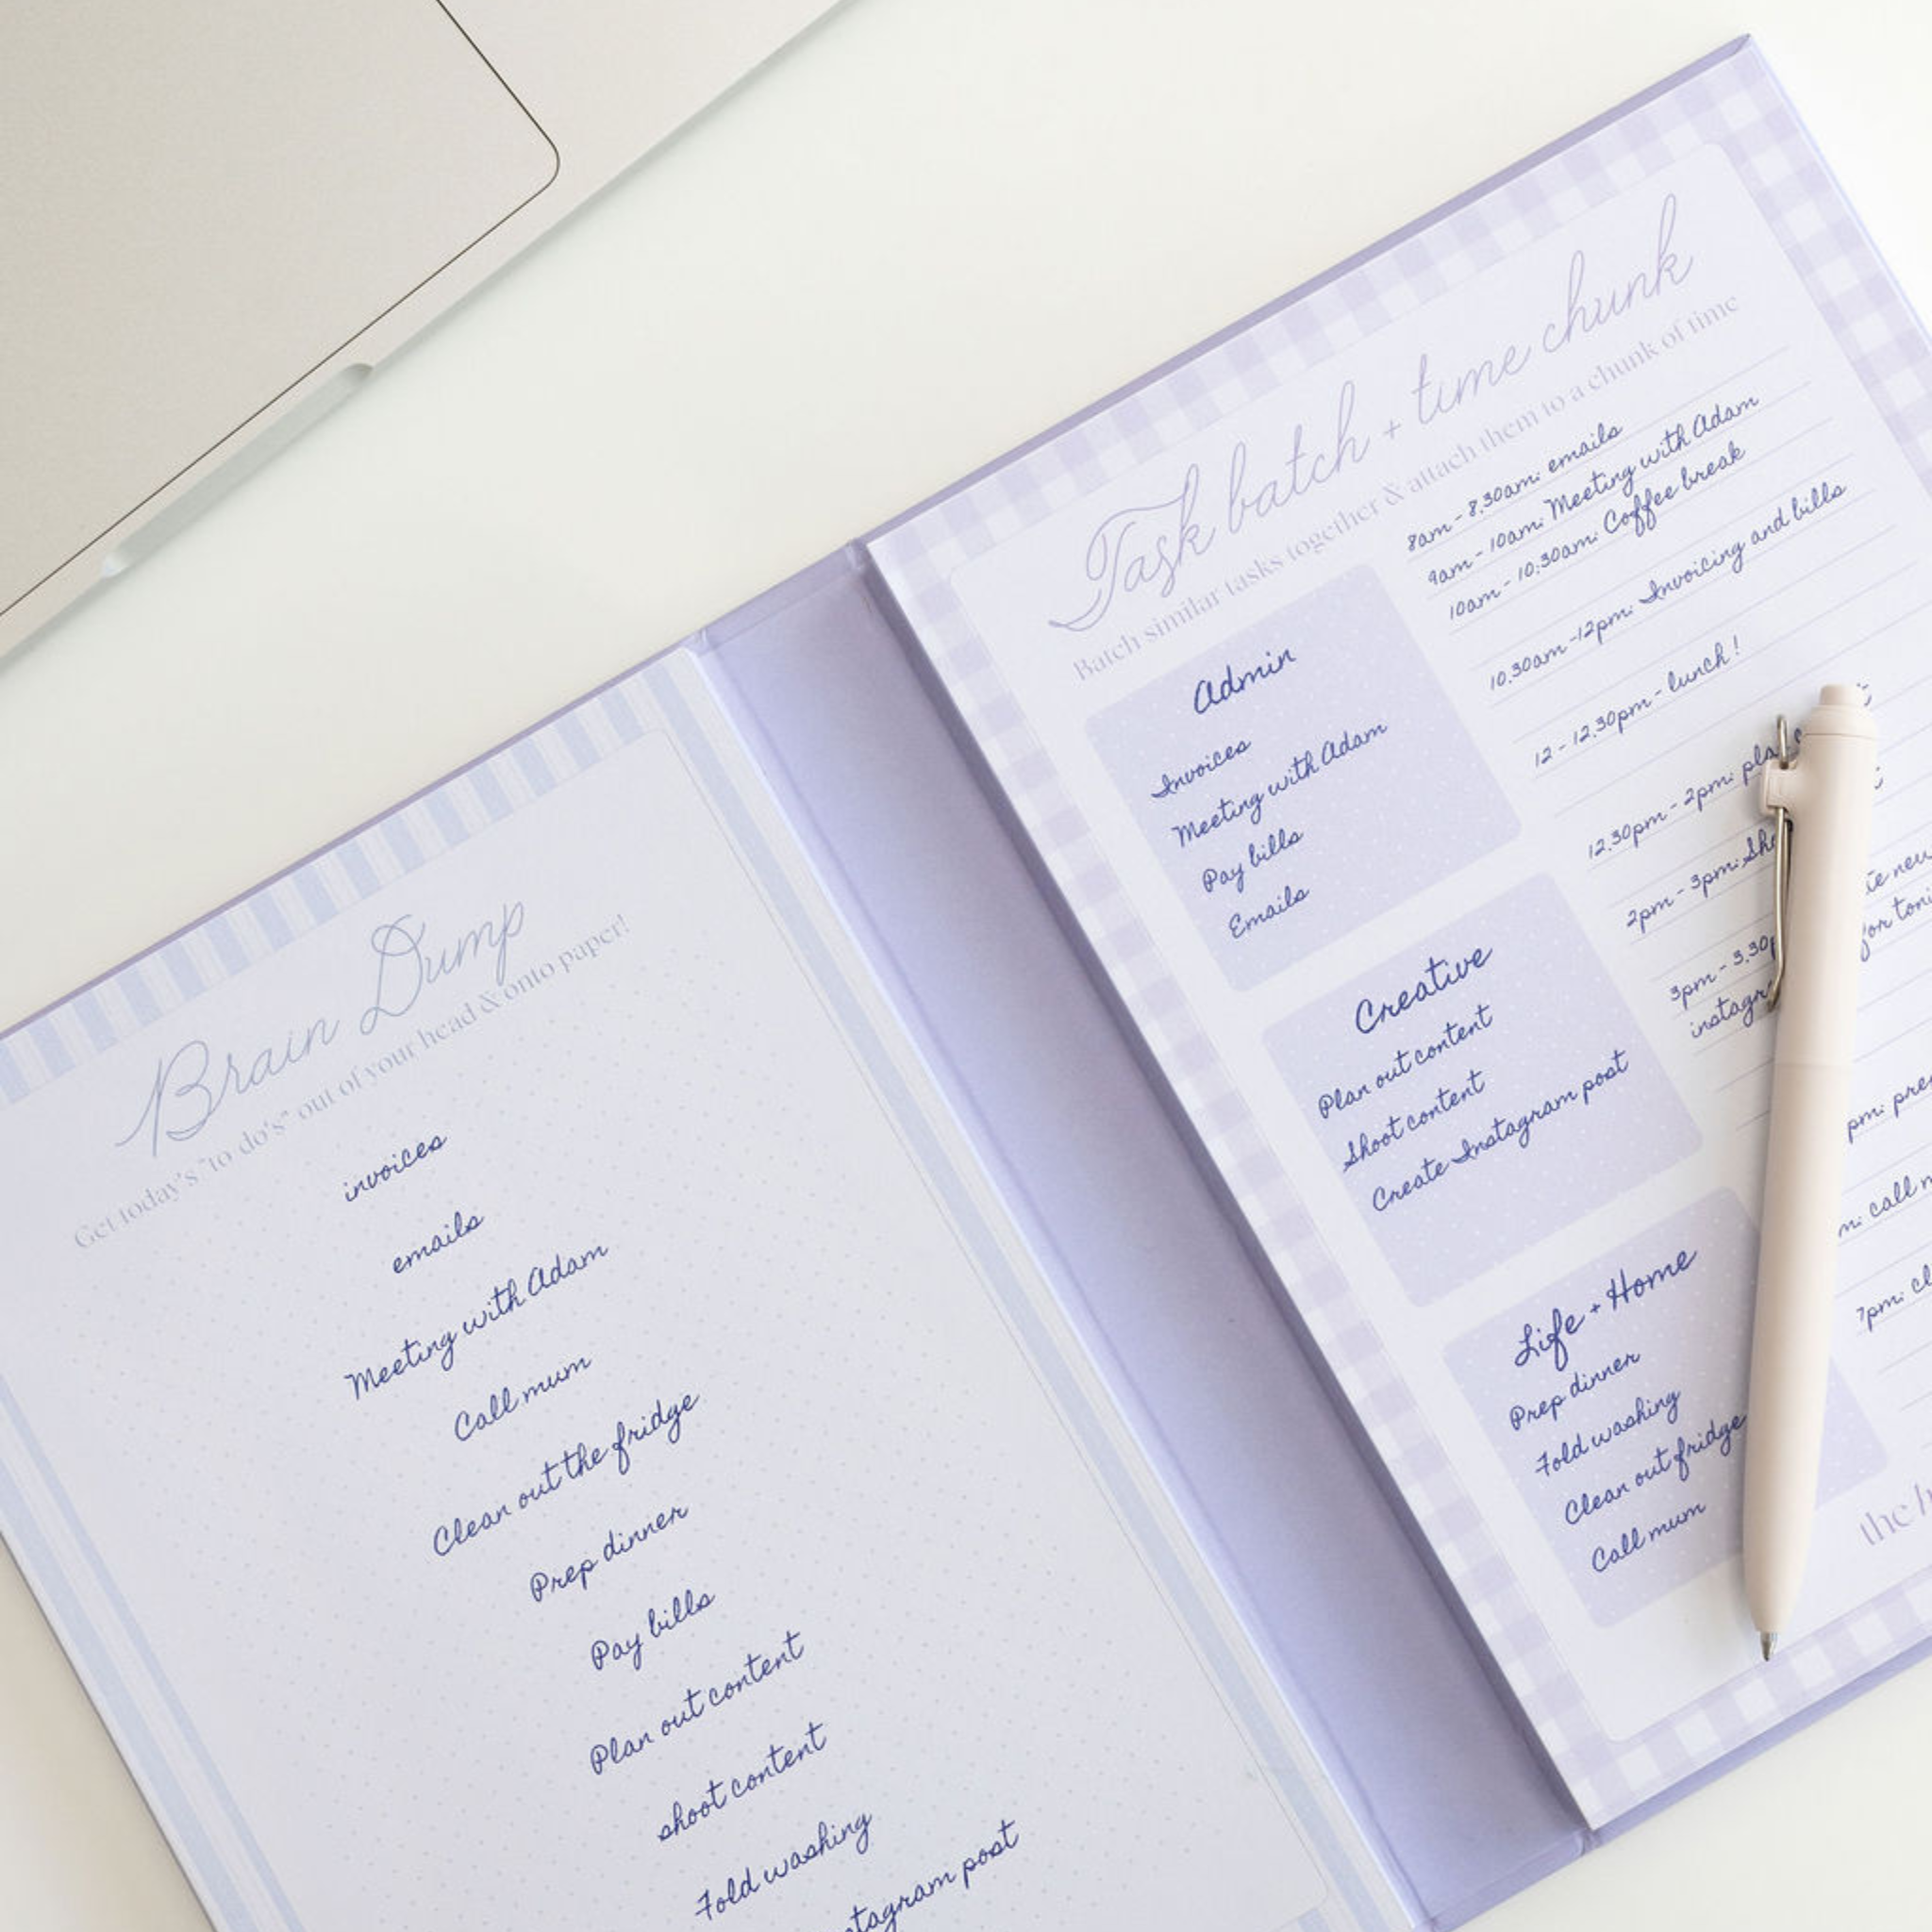 Brain Dump
Get today's "to do's" out of your head & onto paper!
invoices
emails
Meeting with Adam
Call mum
Clean out the fridge
Prep dinner
Pay bills
Plan out content
shoot content
Fold washing
post
Task batch + time chunk
Batch similar tasks together & attach them to a chunk of time
Admin
Invoices
Meeting with Adam
Pay bills
Emails
Creative
Plan out content
Shoot content
Create Instagram post
Life + Home
Prep dinner
Fold washing
Clean out fridge
Call mum
8am - 8.30am: emails
9am - 10am: Meeting with Adam
10am - 10:30am: Coffee break
10.30am - 12pm: Invoicing and bills
12 - 12.30pm - lunch!
12.30pm - 2pm:
2pm - 3pm:
3pm -
for
pm:
call
7pm:
the